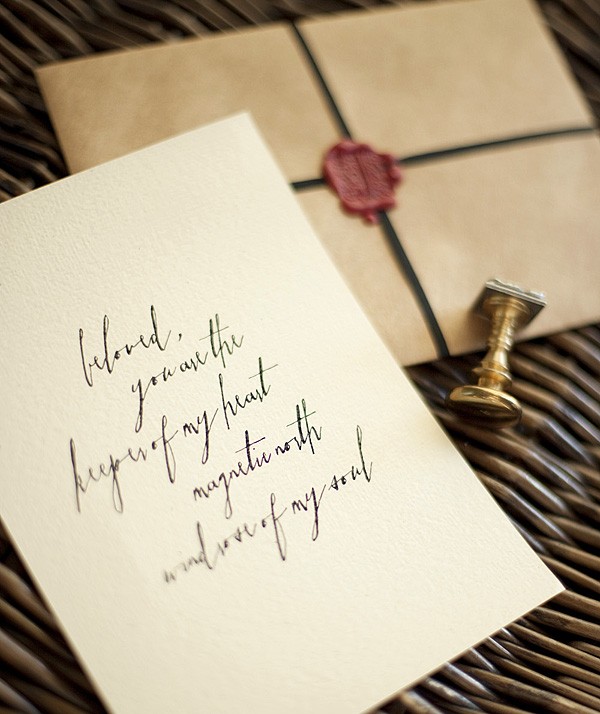 beloved,
you are the
keeper of my heart
magnetic north
windrose of my soul